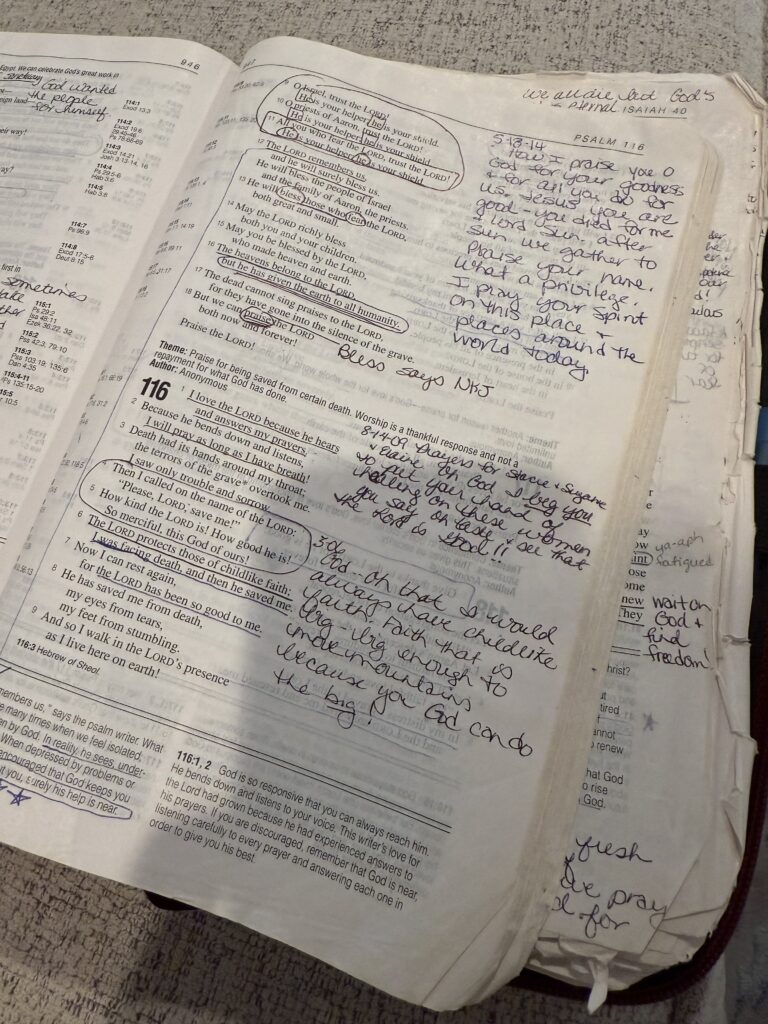 946
Egypt. We can celebrate God's great work in
God wanted
the people
for himself.
114:1
Exod 13:3
114:2
Exod 19:6
Ps 78:68-69
114:3
Exod 14:21
Josh 3:13-14, 16
114:4
Ps 29:5-6
Hab 3:6
114:5
Hab 3:8
114:7
Ps 96:9
114:8
Exod 17:5-6
Deut 8:15
first in
Sometimes
115:1
Ps 29:2
Isa 48:11
Ezek 36:22, 32
115:2
Pss 42:3; 79:10
115:3
Pss 103:19; 135:6
Dan 4:35
115:4-11
Ps 135:15-20
members us," says the psalm writer. What
many times when we feel isolated,
en by God. In reality, he sees, under-
When depressed by problems or
encouraged that God keeps you
it you, surely his help is near.
We all die but God's
eternal
ISAIAH 40
PSALM 116
9 O Israel, trust the LORD!
He is your helper; he is your shield.
10 O priests of Aaron, trust the LORD!
He is your helper; he is your shield.
11 All you who fear the LORD, trust the LORD!
He is your helper; he is your shield.
12 The LORD remembers us,
and he will surely bless us.
He will bless the people of Israel
and the family of Aaron, the priests.
13 He will bless those who fear the LORD,
both great and small.
14 May the LORD richly bless
both you and your children.
15 May you be blessed by the LORD,
who made heaven and earth.
16 The heavens belong to the LORD,
but he has given the earth to all humanity.
17 The dead cannot sing praises to the LORD,
for they have gone into the silence of the grave.
18 But we can praise the LORD
both now and forever!
Praise the LORD!
Bless says NKJ
5-13-14
How I praise you O
God for your goodness
& for all you do for
us. Jesus you are
good - you died for me
Lord. Sun. after
Sun. we gather to
praise your name.
What a privilege.
I pray your Spirit
on this place &
places around the
world today.
Theme: Praise for being saved from certain death. Worship is a thankful response and not a
repayment for what God has done.
Author: Anonymous
116 I love the LORD because he hears
and answers my prayers.
2 Because he bends down and listens,
I will pray as long as I have breath!
3 Death had its hands around my throat;
the terrors of the grave* overtook me.
I saw only trouble and sorrow.
4 Then I called on the name of the LORD:
"Please, LORD, save me!"
5 How kind the LORD is! How good he is!
So merciful, this God of ours!
6 The LORD protects those of childlike faith;
I was facing death, and then he saved me.
7 Now I can rest again,
for the LORD has been so good to me.
8 He has saved me from death,
my eyes from tears,
my feet from stumbling.
9 And so I walk in the LORD's presence
as I live here on earth!
116:3 Hebrew of Sheol.
8-14-09 Prayers for Stacie & Suzanne
Oh God I beg you
to put your hand of
healing on these women
You say oh taste & see that
the Lord is Good!!
God - oh that I would
always have childlike
faith. Faith that is
big - big enough to
move mountains
because you God can do
the big!
116:1, 2 God is so responsive that you can always reach him.
He bends down and listens to your voice. This writer's love for
the Lord had grown because he had experienced answers to
his prayers. If you are discouraged, remember that God is near,
listening carefully to every prayer and answering each one in
order to give you his best.
ya-aph
fatigued
wait on
God &
find
freedom!
fresh
we pray
for